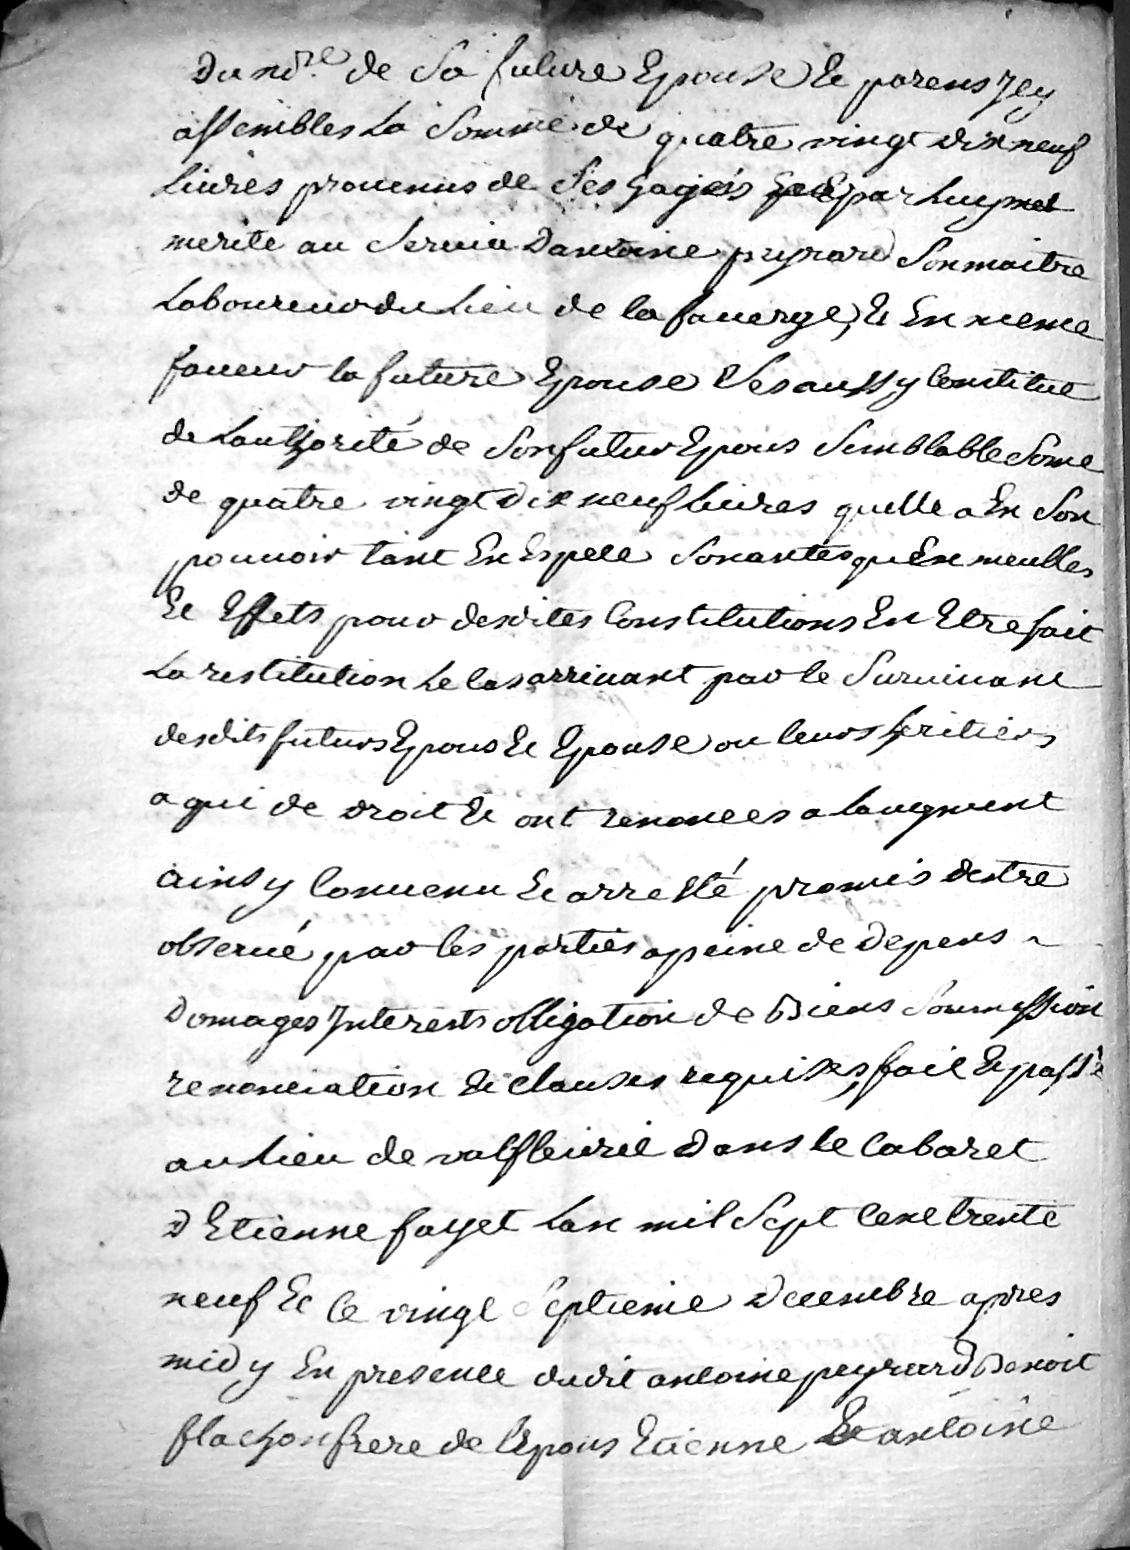 du nd.re de Sa future Epouse Et parens Jcy
assembles La Somme de quatre vingt dix neuf
Livres provenus de Ses gages par Luy
merite au Service dantoine peyrard Son maitre
Laboureur du Lieu de la faverge, Et En meme
faveur la future Epouse Sesaussy Constitue
de Lauthorité de Son futur Epous Semblable Some
de quatre vingt dix neuf Livres quelle a En Son
pouvoir tant En Espece Sonantes quEn meubles
Et Effets pour desdites Constitutions En Etre fait
La restitution Le Cas arrivant par le Survivant
desdits futurs Epous Et Epouse ou leurs heritiers
a qui de droit Et ont renonces a Laugment
ainsy Convenu Et arresté promis destre
observé par les parties a peine de depens ~
Domages Interests obligation de Biens Soumission
renonciation Et clauses requises, fait Et passé
au Lieu de valfleurie dans le Cabaret
d Etienne fayet Lan mil Sept Cent trente
neuf Et Le vingt Septieme decembre apres
midy En presence dudit antoine peyrard Benoit
flachon frere de lEpous Etienne Et antoine